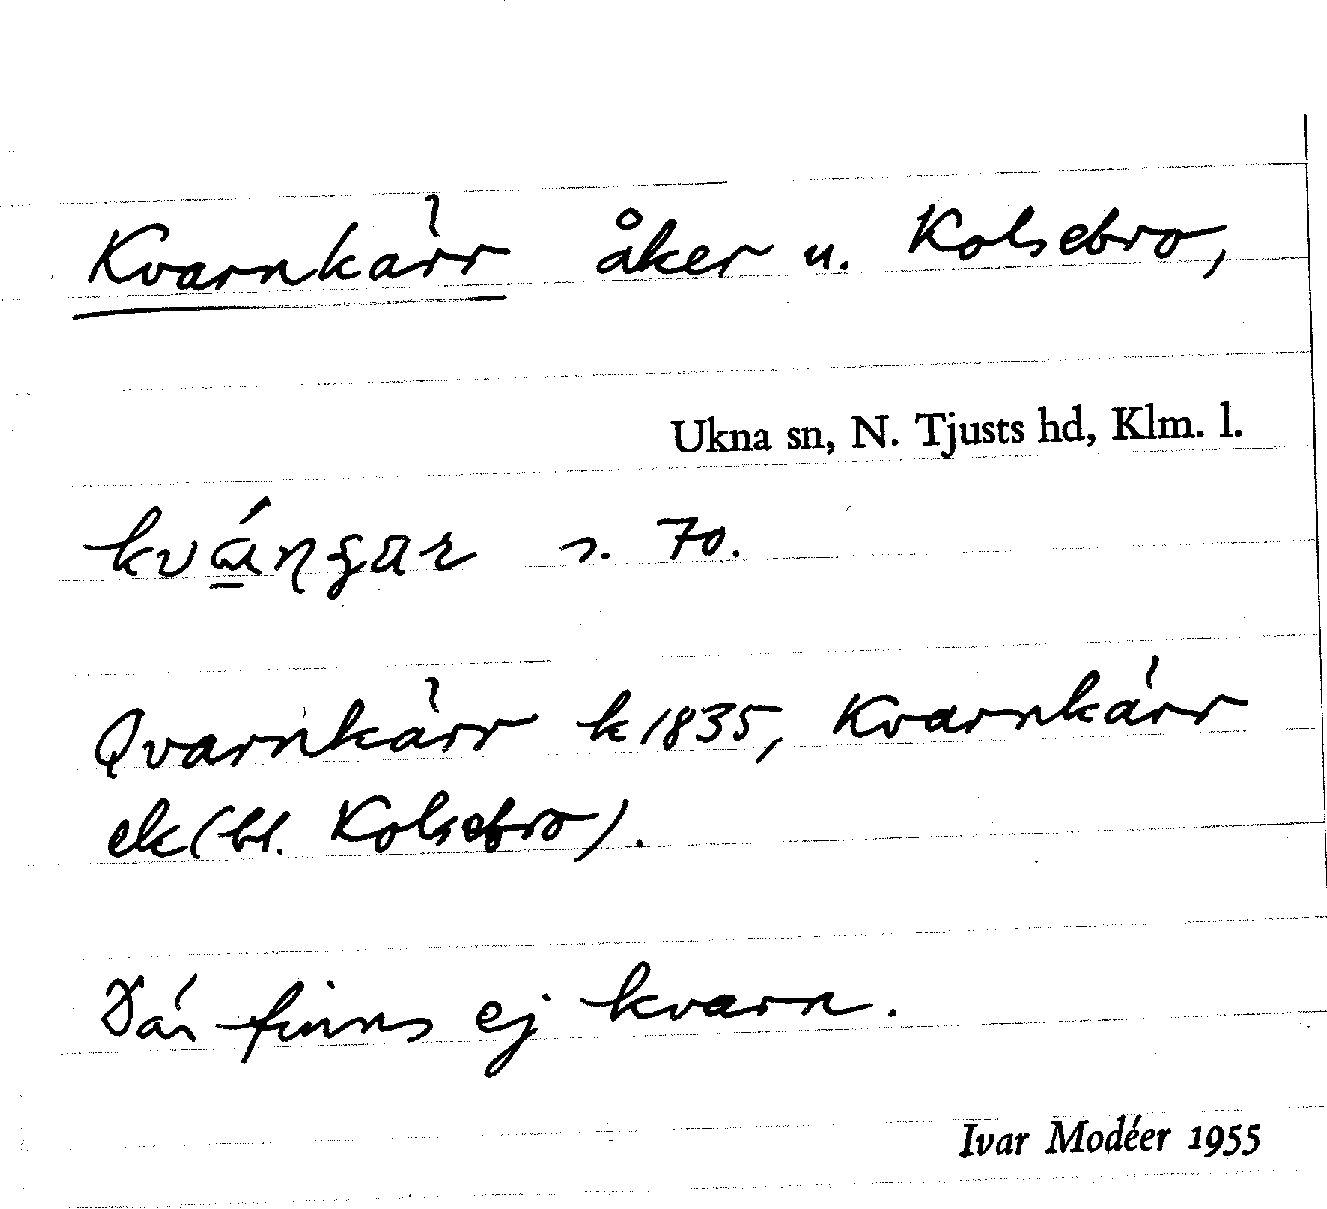 Kvarnkärr åker u. Kolsebro,
Ukna sn, N. Tjusts hd, Klm. l.
s. 70.
Qvarnkärr k 1835, Kvarnkärr
ek (bl. Kolsebro).
Där finns ej kvarn.
Ivar Modéer 1955